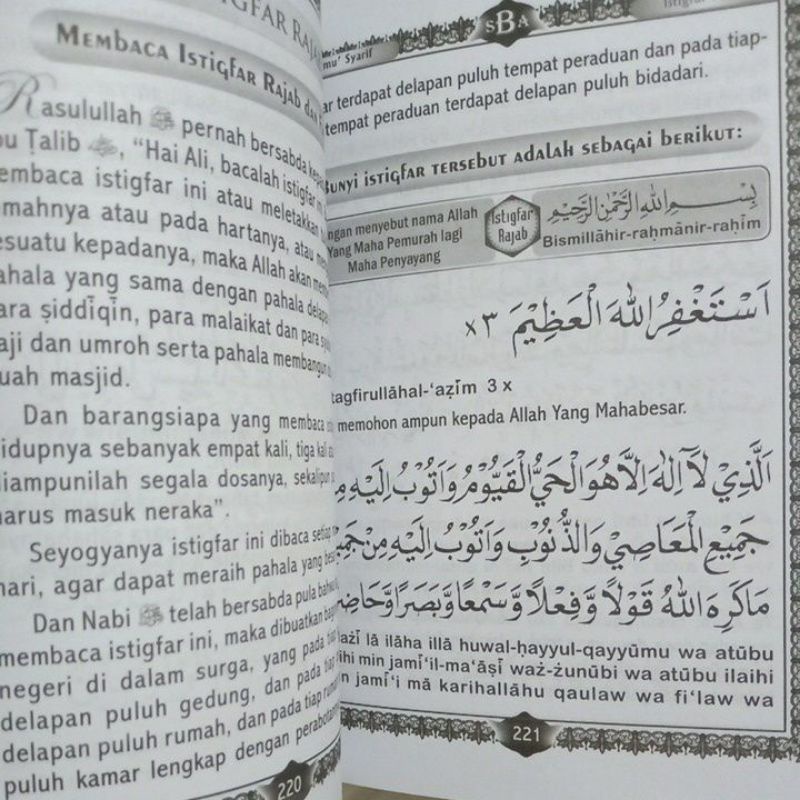 MEMBACA ISTIGFAR RAJAB
Rasulullah ﷺ pernah bersabda
Ṭalib, "Hai Ali, bacalah istigfar
istigfar ini atau meletakkan
atau pada hartanya, atau
kepadanya, maka Allah akan
yang sama dengan pahala
ṣiddīqīn, para malaikat dan para
dan umroh serta pahala membangun
masjid.
Dan barangsiapa yang membaca
sebanyak empat kali, tiga kali
segala dosanya, sekalipun
masuk neraka".
Seyogyanya istigfar ini dibaca setiap
hari, agar dapat meraih pahala yang
Dan Nabi ﷺ telah bersabda pula
membaca istigfar ini, maka dibuatkan
negeri di dalam surga, yang pada
delapan puluh gedung, dan pada tiap
delapan puluh rumah, dan pada tiap
puluh kamar lengkap dengan
220
Syarif
SBA
terdapat delapan puluh tempat peraduan dan pada tiap-
tempat peraduan terdapat delapan puluh bidadari.
BUNYI ISTIGFAR TERSEBUT ADALAH SEBAGAI BERIKUT:
menyebut nama Allah
Yang Maha Pemurah lagi
Maha Penyayang
Istigfar
Rajab
بِسْمِ اللهِ الرَّحْمٰنِ الرَّحِيْمِ
Bismillāhir-raḥmānir-raḥīm
اَسْتَغْفِرُ اللهَ الْعَظِيْمَ ٣ x
tagfirullāhal-'aẓīm 3 x
memohon ampun kepada Allah Yang Mahabesar.
اَلَّذِيْ لَآ اِلٰهَ اِلَّا هُوَ الْحَيُّ الْقَيُّوْمُ وَاَتُوْبُ اِلَيْهِ
جَمِيْعِ الْمَعَاصِيْ وَالذُّنُوْبِ وَاَتُوْبُ اِلَيْهِ مِنْ
مَا كَرِهَ اللهُ قَوْلًا وَّفِعْلًا وَّسَمْعًا وَّبَصَرًا
lā ilāha illā huwal-ḥayyul-qayyūmu wa atūbu
min jamī'il-ma'āṣī waż-żunūbi wa atūbu ilaihi
jamī'i mā karihallāhu qaulaw wa fi'law wa
221